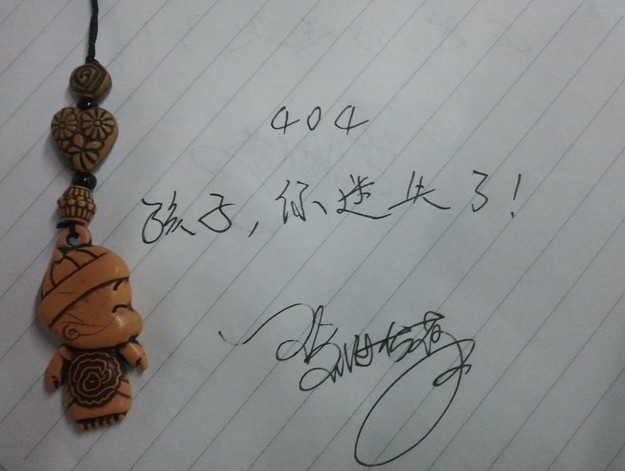 404
孩子,你迷失了!